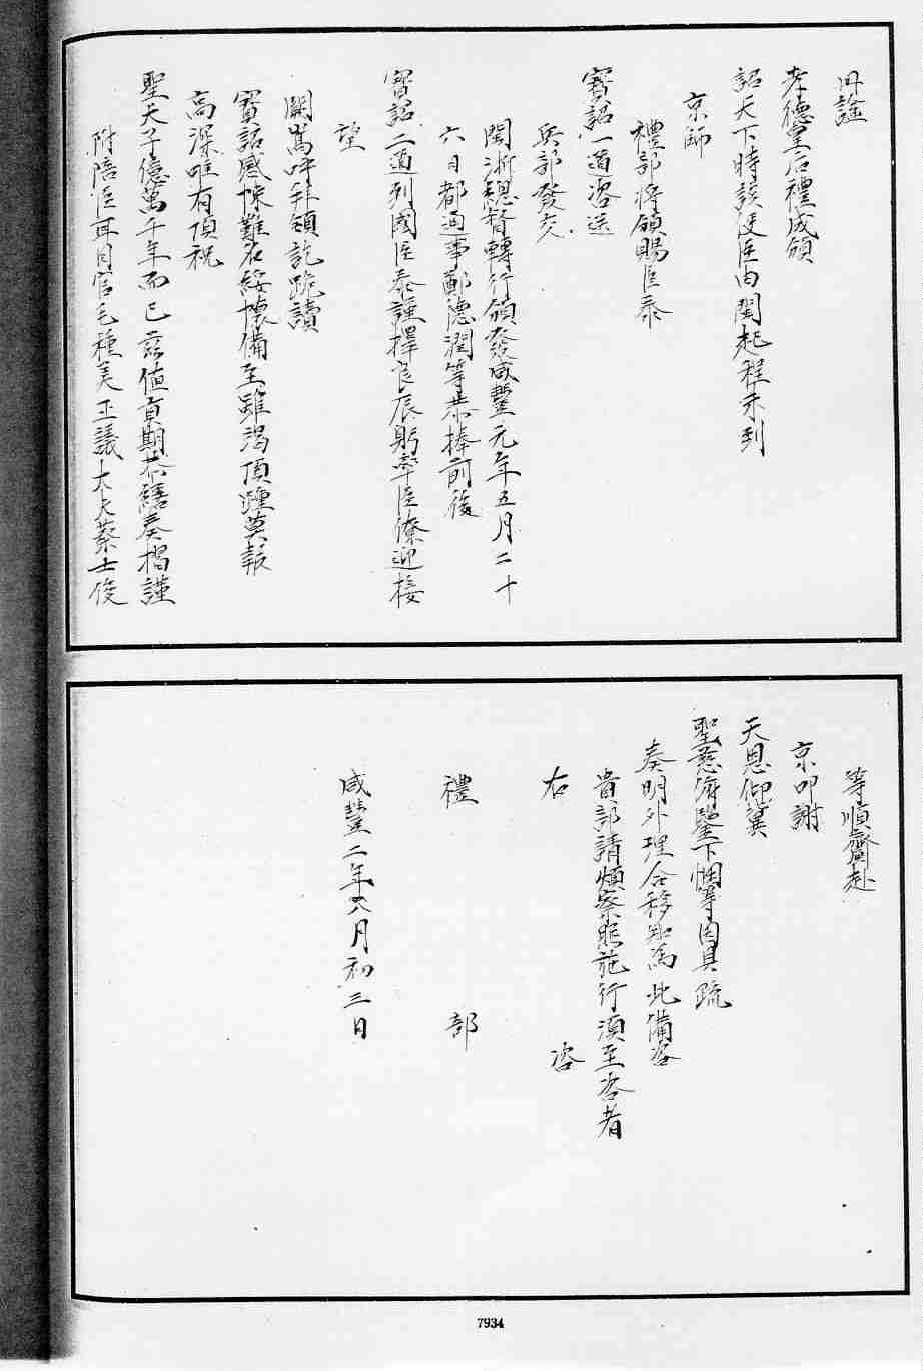 冊諡
孝德皇后禮成頒
詔天下時該使臣由閩起程未到
京師
禮部將頒賜臣泰
寶詔一道咨送
兵部發交
閩浙總督轉行頒發咸豐元年五月二十
六日都通事鄭德潤等恭捧前後
寶詔二道到國臣泰謹擇良辰躬率臣僚迎接
望
闕嵩呼拜領訖跪讀
寶詔感悚難名綏懷備至雖渴頂踵莫報
高深唯有頂祝
聖天子億萬千年而已茲值貢期恭繕奏揭謹
附陪臣耳目官毛種美正議大夫蔡士俊
等順齎赴
京叩謝
天恩仰冀
聖慈俯鑒下悃等因具疏
奏明外理合移知為此備咨
貴部請煩察照施行須至咨者
右 咨
禮 部
咸豐二年八月初三日
7934